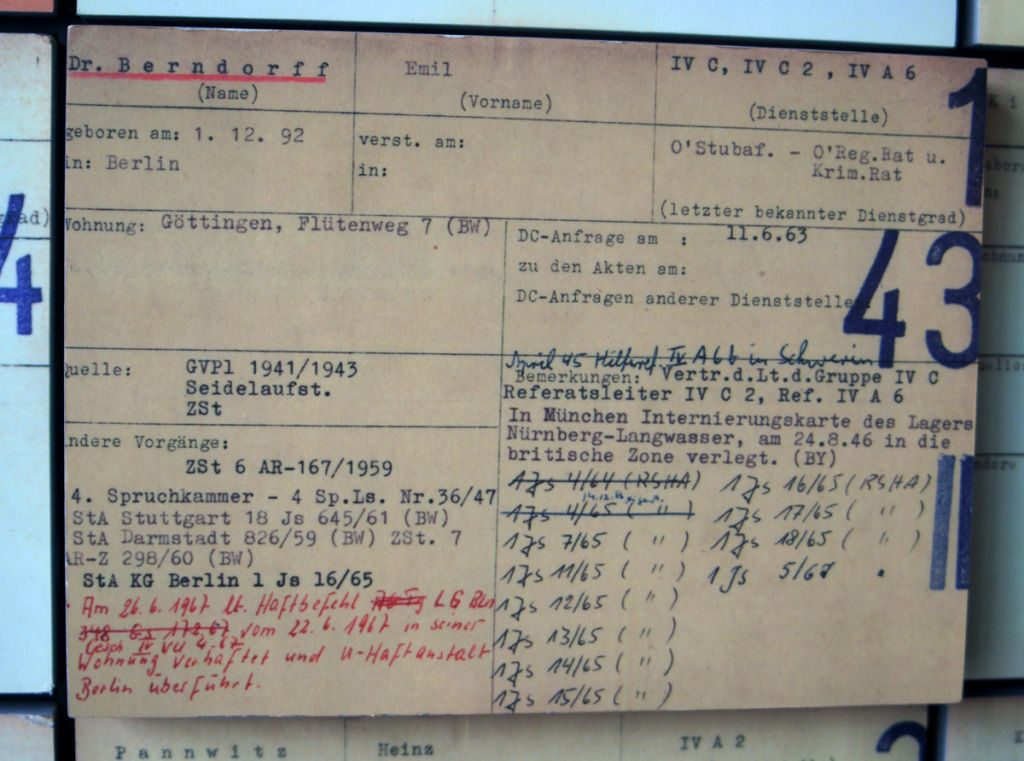 Dr. Berndorff
(Name)
Emil
(Vorname)
IV C, IV C 2, IV A 6
(Dienststelle)
1
geboren am: 1. 12. 92
in: Berlin
verst. am:
in:
O'Stubaf. - O'Reg.Rat u.
Krim.Rat
(letzter bekannter Dienstgrad)
Wohnung: Göttingen, Flütenweg 7 (BW)
DC-Anfrage am : 11.6.63
zu den Akten am:
DC-Anfragen anderer Dienststellen
43
Quelle: GVPl 1941/1943
Seidelaufst.
ZSt
April 45 Hilfsref. IV A6b in Schwerin
Bemerkungen: Vertr.d.Lt.d.Gruppe IV C
Referatsleiter IV C 2, Ref. IV A 6
In München Internierungskarte des Lagers
Nürnberg-Langwasser, am 24.8.46 in die
britische Zone verlegt. (BY)
Andere Vorgänge:
ZSt 6 AR-167/1959
4. Spruchkammer - 4 Sp.Ls. Nr.36/47
StA Stuttgart 18 Js 645/61 (BW)
StA Darmstadt 826/59 (BW) ZSt. 7
AR-Z 298/60 (BW)
StA KG Berlin 1 Js 16/65
Am 26.6.1967 lt. Haftbefehl LG Bln
vom 22.6.1967 in seiner
Wohnung verhaftet und U-Haftanstalt
Berlin überführt.
1 Js 4/64 (RSHA)
1 Js 4/65 ( " )
1 Js 7/65 ( " )
1 Js 11/65 ( " )
1 Js 12/65 ( " )
1 Js 13/65 ( " )
1 Js 14/65 ( " )
1 Js 15/65 ( " )
1 Js 16/65 (RSHA)
1 Js 17/65 ( " )
1 Js 18/65 ( " )
1 Js 5/67 .
4
Pannwitz
Heinz
IV A 2